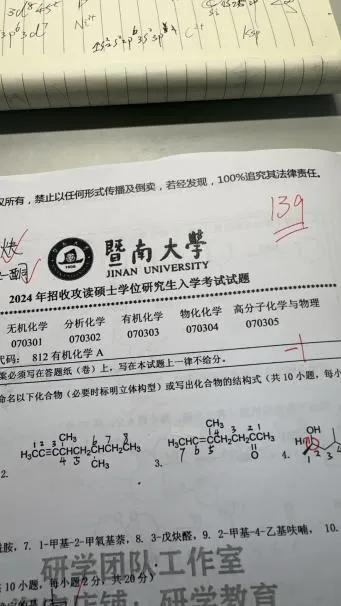 3d⁸4s²
3p⁶3d⁷
Ni²⁺
1s²2s²2p⁶3s²3p
Ksp
权所有，禁止以任何形式传播及倒卖，若经发现，100%追究其法律责任。
139
炔
酮
暨南大学
JINAN UNIVERSITY
2024 年招收攻读硕士学位研究生入学考试试题
无机化学 分析化学 有机化学 物化化学 高分子化学与物理
070301 070302 070303 070304 070305
代码： 812 有机化学 A
案必须写在答题纸（卷）上，写在本试题上一律不给分。
-1
命名以下化合物（必要时标明立体构型）或写出化合物的结构式（共 10 小题，每小
2.
CH₃
H₃CC≡CCHCH₂CHCH₂CH₃
CH₃
1 2 3 4 5 6 7 8
3.
CH₃
H₃CHC=CCH₂CH₂CCH₃
O
7 6 5 4 3 2 1
4.
OH
1 2 3
胺，7. 1-甲基-2-甲氧基萘，8. 3-戊炔醛，9. 2-甲基-4-乙基呋喃， 10.
研学团队工作室
共 10 小题，每小题 2 分，共 20 分）
店铺：研学教育